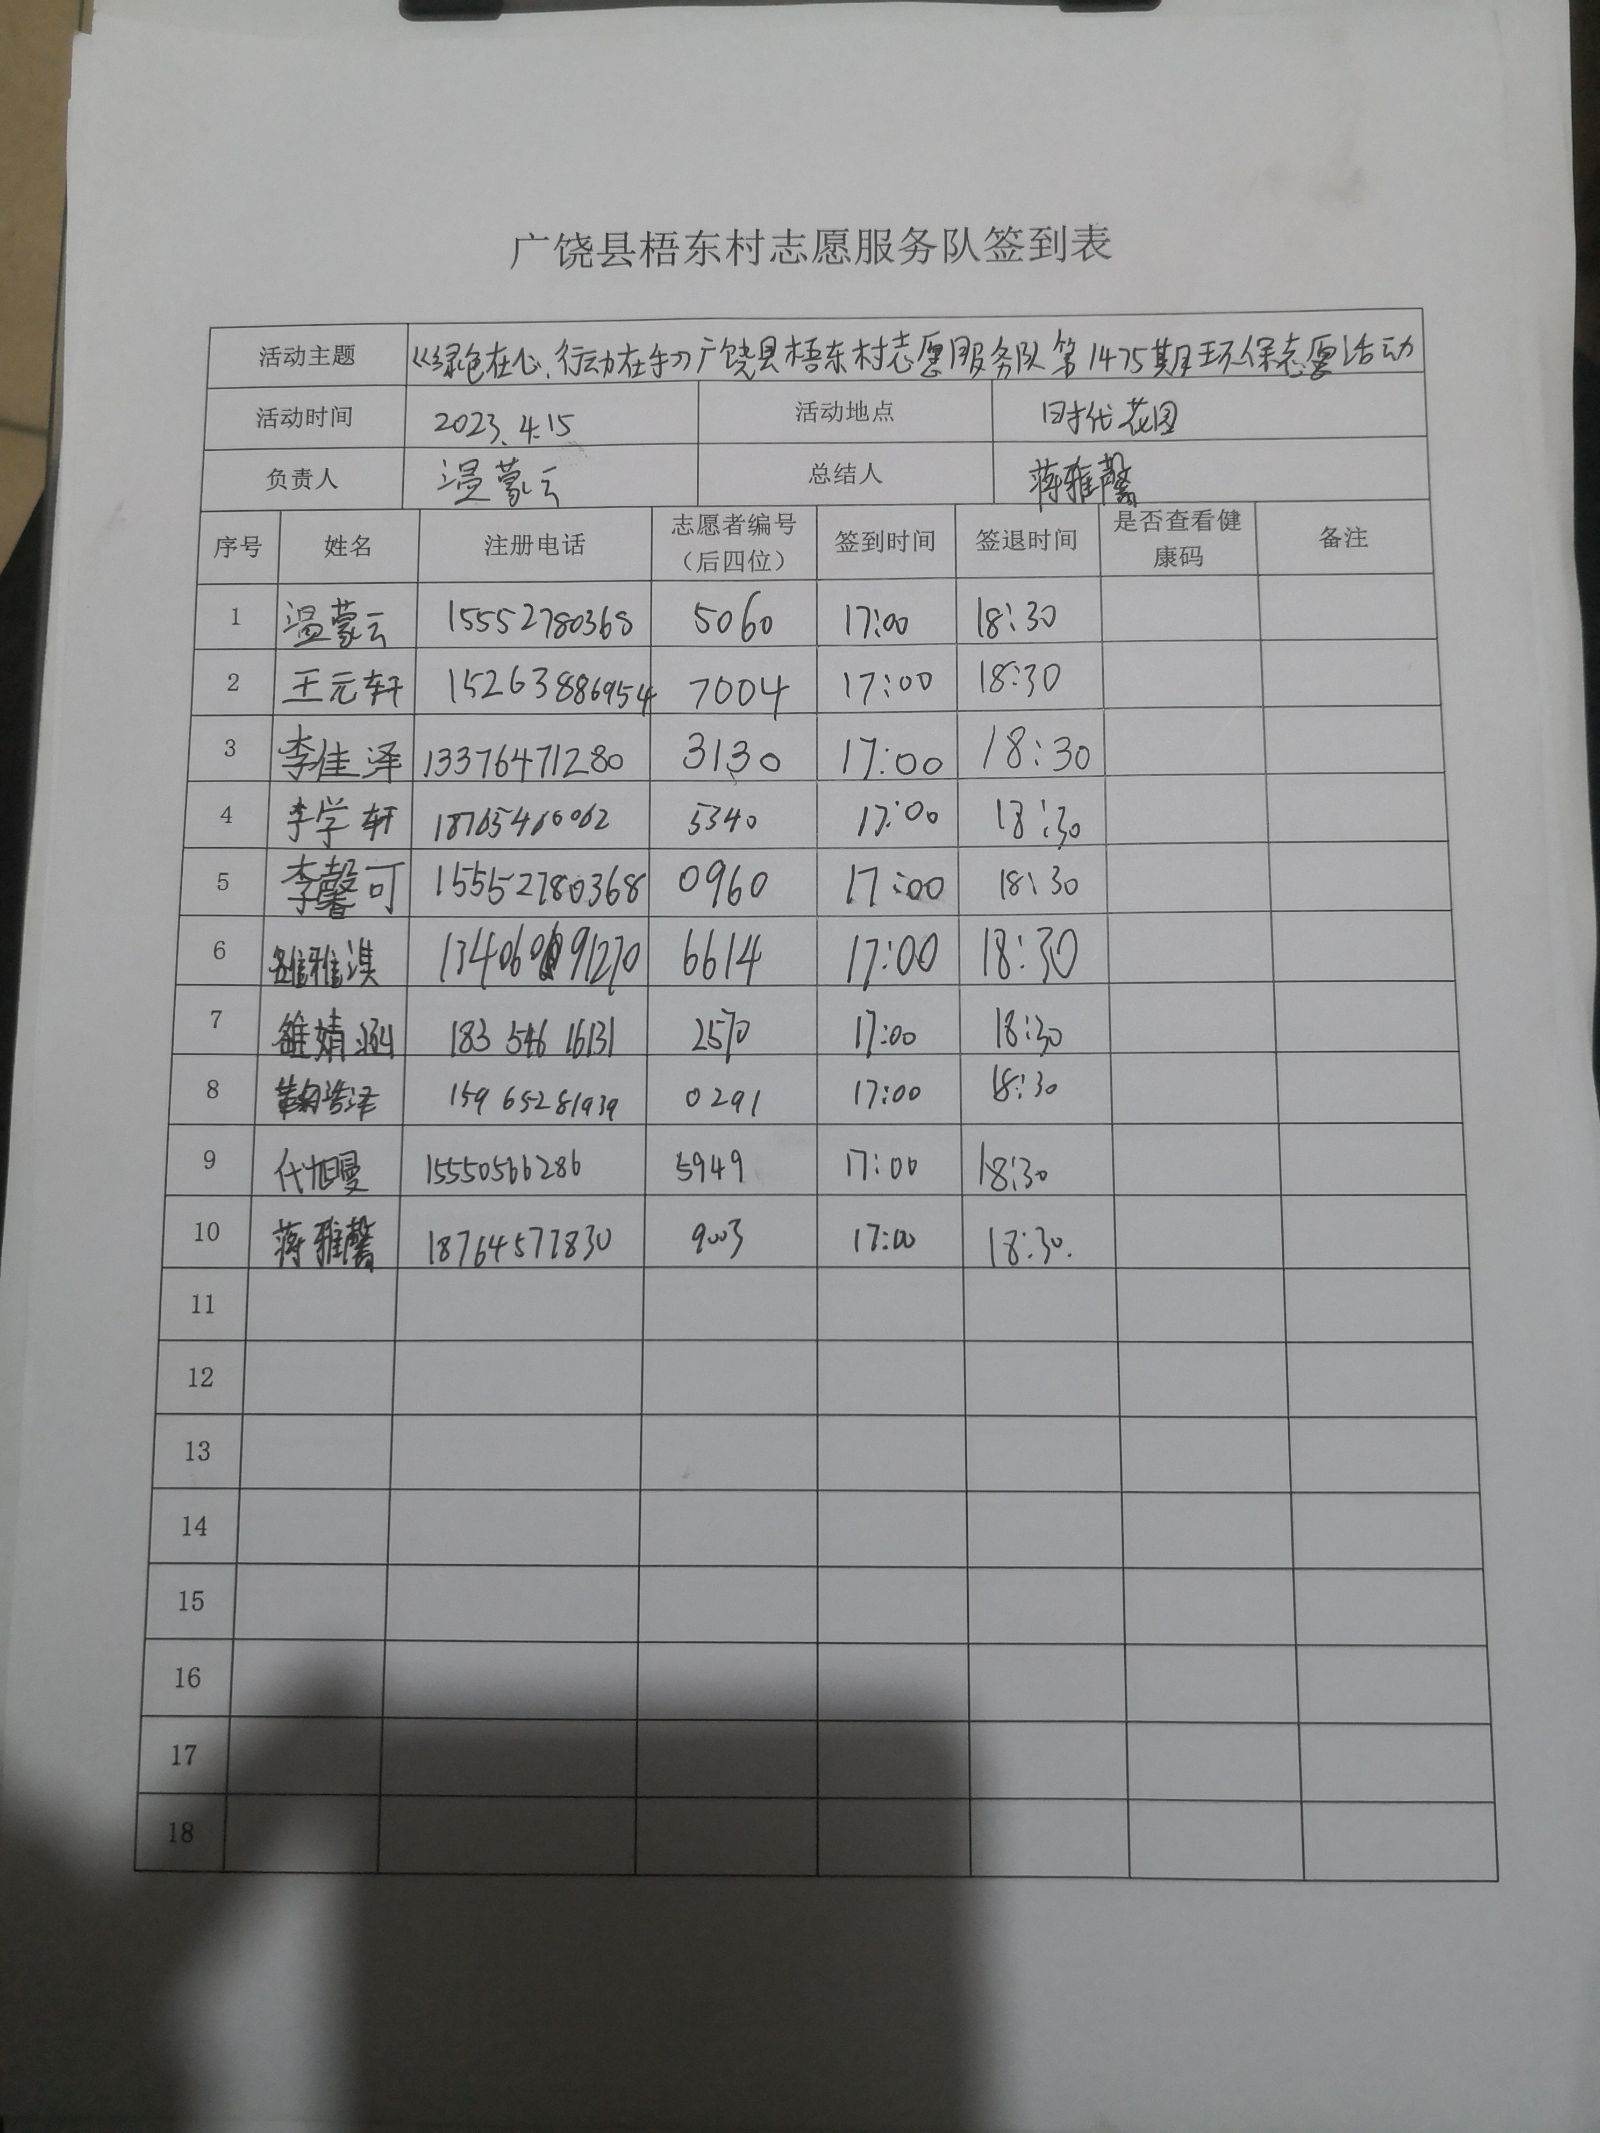 广饶县梧东村志愿服务队签到表
活动主题 《绿色在心、行动在手》广饶县梧东村志愿服务队第1475期环保志愿活动
活动时间 2023.4.15 活动地点 时代花园
负责人 温蒙云 总结人 蒋雅馨
序号 姓名 注册电话 志愿者编号（后四位） 签到时间 签退时间 是否查看健康码 备注
1 温蒙云 15552780368 5060 17:00 18:30
2 王元轩 15263886954 7004 17:00 18:30
3 李佳泽 13376471280 3130 17:00 18:30
4 李学轩 18765460062 5340 17:00 18:30
5 李馨可 15552780368 0960 17:00 18:30
6 雅淇 6614 17:00 18:30
7 婧涵 18354616131 2570 17:00 18:30
8 浩泽 15965281939 0291 17:00 18:30
9 代旭曼 15550566286 5949 17:00 18:30
10 蒋雅馨 18764577830 9003 17:00 18:30.
11
12
13
14
15
16
17
18